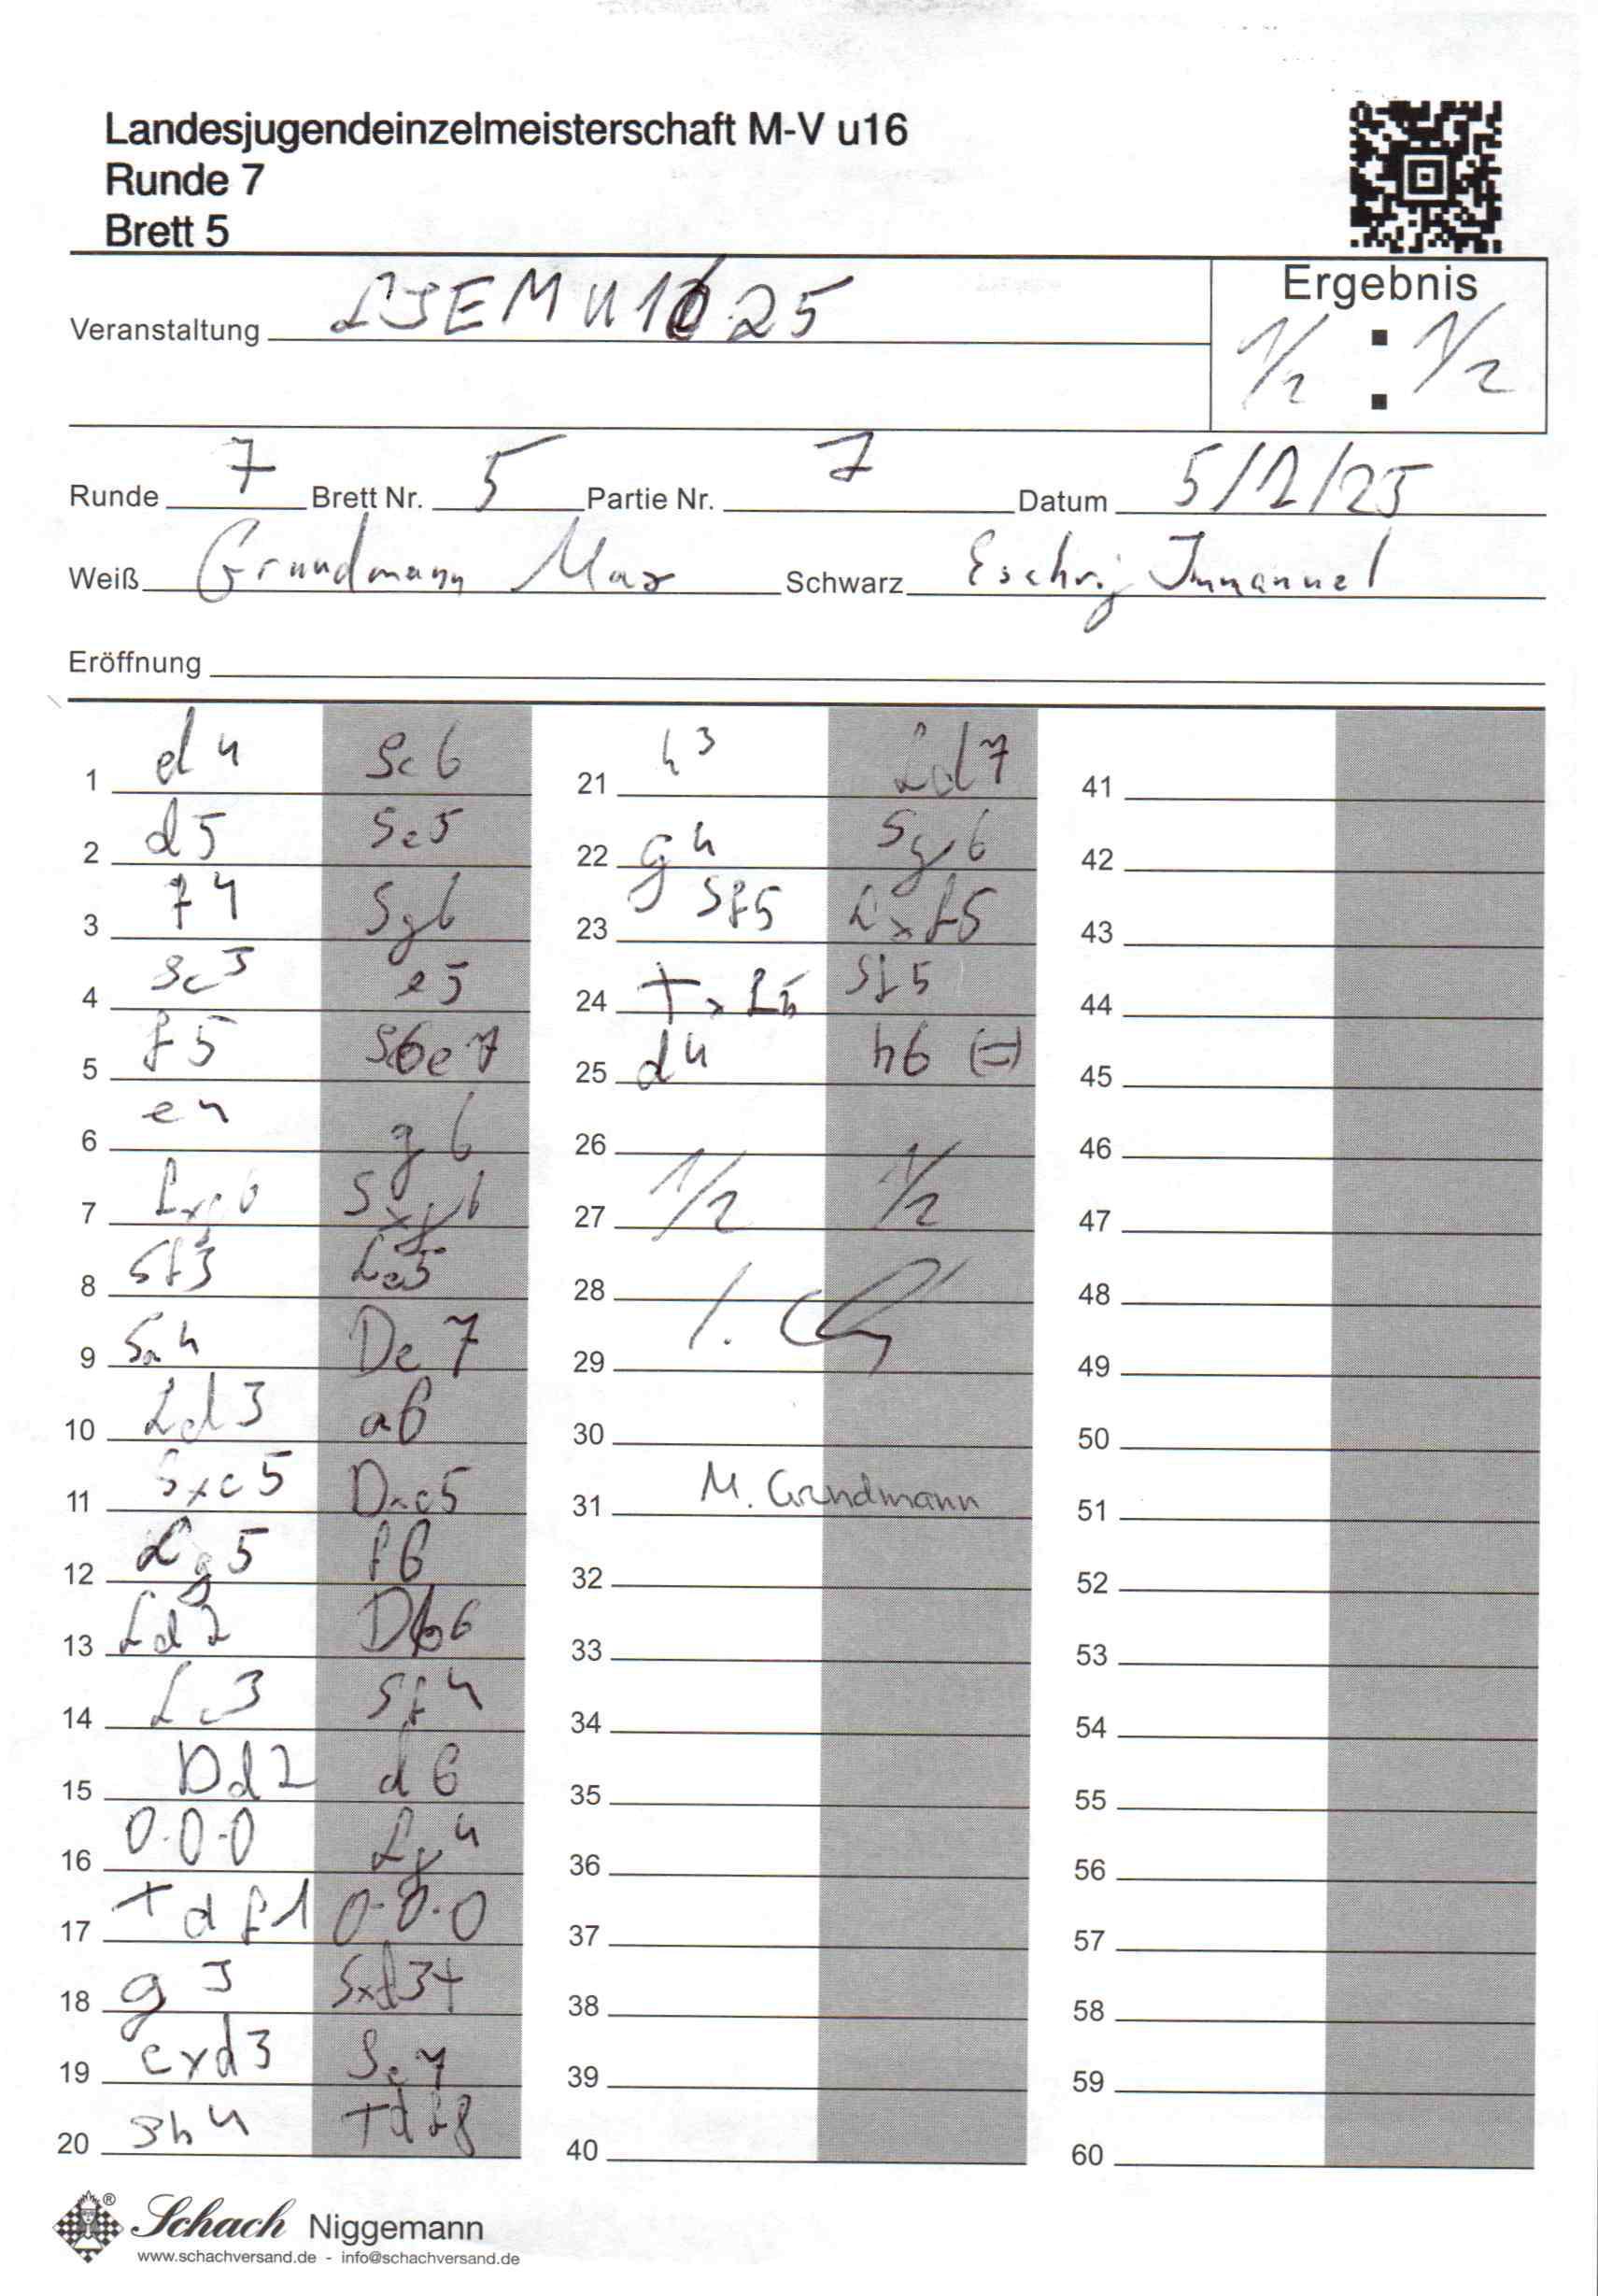 Landesjugendeinzelmeisterschaft M-V u16
Runde 7
Brett 5
Veranstaltung LJEM U16 25
Ergebnis
1/2 : 1/2
Runde 7 Brett Nr. 5 Partie Nr. 7 Datum 5/2/25
Weiß Grundmann Max Schwarz Eschrig Immanuel
Eröffnung
1 d4 Sc6
2 d5 Se5
3 f4 Sg6
4 Sc3 e5
5 f5 S6e7
6 e4 g6
7 fxg6 Sxg6
8 Sf3 Lc5
9 Sa4 De7
10 Ld3 a6
11 Sxc5 Dxc5
12 Lg5 f6
13 Ld2 Db6
14 Lc3 Sf4
15 Dd2 d6
16 0-0-0 Lg4
17 Tdf1 0-0-0
18 g3 Sxd3+
19 cxd3 Se7
20 Sh4 Tdf8
21 h3 Ld7
22 g4 Sg6
23 Sf5 Lxf5
24 Txf5 Sf5
25 d4 h6 (=)
26
27 1/2 1/2
28
29
30
31 M. Grundmann
32
33
34
35
36
37
38
39
40
41
42
43
44
45
46
47
48
49
50
51
52
53
54
55
56
57
58
59
60
Schach Niggemann
www.schachversand.de - info@schachversand.de